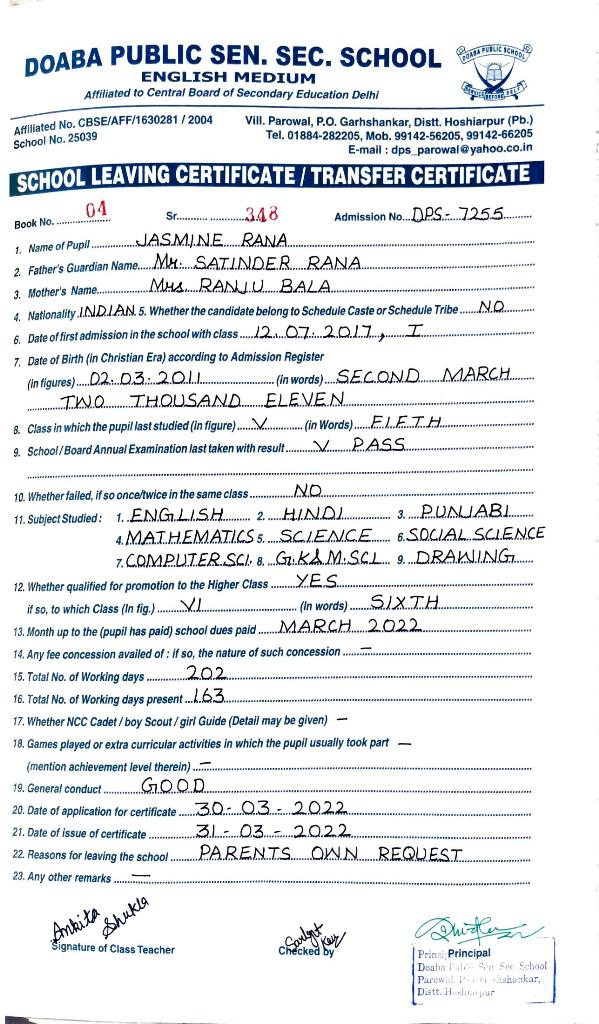 DOABA PUBLIC SEN. SEC. SCHOOL
DOABA PUBLIC SCHOOL
SERVICE BEFORE SELF
ENGLISH MEDIUM
Affiliated to Central Board of Secondary Education Delhi
Affiliated No. CBSE/AFF/1630281 / 2004
School No. 25039
Vill. Parowal, P.O. Garhshankar, Distt. Hoshiarpur (Pb.)
Tel. 01884-282205, Mob. 99142-56205, 99142-66205
E-mail : dps_parowal@yahoo.co.in
SCHOOL LEAVING CERTIFICATE / TRANSFER CERTIFICATE
Book No. 04 Sr. 348 Admission No. DPS-7255
1. Name of Pupil JASMINE RANA
2. Father's Guardian Name Mr. SATINDER RANA
3. Mother's Name Mrs. RANJU BALA
4. Nationality INDIAN 5. Whether the candidate belong to Schedule Caste or Schedule Tribe NO
6. Date of first admission in the school with class 12.07.2017, I
7. Date of Birth (in Christian Era) according to Admission Register
(in figures) 02.03.2011 (in words) SECOND MARCH
TWO THOUSAND ELEVEN
8. Class in which the pupil last studied (in figure) V (in Words) FIFTH
9. School/Board Annual Examination last taken with result V PASS
10. Whether failed, if so once/twice in the same class NO
11. Subject Studied : 1. ENGLISH 2. HINDI 3. PUNJABI
4. MATHEMATICS 5. SCIENCE 6. SOCIAL SCIENCE
7. COMPUTER SCI. 8. G.K & M.SCI. 9. DRAWING
12. Whether qualified for promotion to the Higher Class YES
if so, to which Class (In fig.) VI (In words) SIXTH
13. Month up to the (pupil has paid) school dues paid MARCH 2022
14. Any fee concession availed of : if so, the nature of such concession —
15. Total No. of Working days 202
16. Total No. of Working days present 163
17. Whether NCC Cadet / boy Scout / girl Guide (Detail may be given) —
18. Games played or extra curricular activities in which the pupil usually took part —
(mention achievement level therein) —
19. General conduct GOOD
20. Date of application for certificate 30-03-2022
21. Date of issue of certificate 31-03-2022
22. Reasons for leaving the school PARENTS OWN REQUEST
23. Any other remarks —
Ankita Shukla
Signature of Class Teacher
Checked by
Principal
Principal
Doaba Public Sen. Sec. School
Parowal P.O. Garhshankar,
Distt. Hoshiarpur